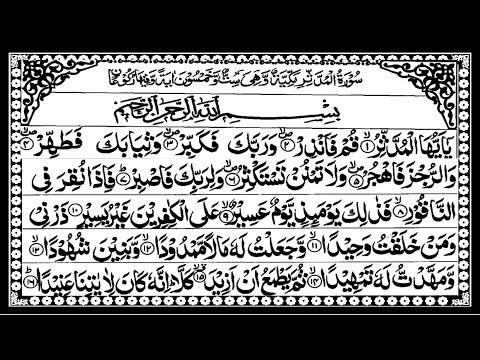 سُوْرَةُ الْمُدَّثِّرِ مَكِّيَّةٌ وَّهِيَ سِتٌّ وَّخَمْسُوْنَ اٰيَةً وَّفِيْهَا رُكُوْعَانِ
بِسْمِ اللّٰهِ الرَّحْمٰنِ الرَّحِيْمِ
يٰۤاَيُّهَا الْمُدَّثِّرُ ۙ﴿۱﴾ قُمْ فَاَنْذِرْ ۪ۙ﴿۲﴾ وَرَبَّكَ فَكَبِّرْ ۪ۙ﴿۳﴾ وَثِيَابَكَ فَطَهِّرْ ۪ۙ﴿۴﴾
وَالرُّجْزَ فَاهْجُرْ ۪ۙ﴿۵﴾ وَلَا تَمْنُنْ تَسْتَكْثِرُ ۪ۙ﴿۶﴾ وَلِرَبِّكَ فَاصْبِرْ ؕ﴿۷﴾ فَاِذَا نُقِرَ فِى
النَّاقُوْرِ ۙ﴿۸﴾ فَذٰلِكَ يَوْمَئِذٍ يَّوْمٌ عَسِيْرٌ ۙ﴿۹﴾ عَلَى الْكٰفِرِيْنَ غَيْرُ يَسِيْرٍ ﴿۱۰﴾ ذَرْنِىْ
وَمَنْ خَلَقْتُ وَحِيْدًا ۙ﴿۱۱﴾ وَّجَعَلْتُ لَهٗ مَالًا مَّمْدُوْدًا ۙ﴿۱۲﴾ وَّبَنِيْنَ شُهُوْدًا ۙ﴿۱۳﴾
وَّمَهَّدْتُّ لَهٗ تَمْهِيْدًا ۙ﴿۱۴﴾ ثُمَّ يَطْمَعُ اَنْ اَزِيْدَ ۙ﴿۱۵﴾ كَلَّا ؕ اِنَّهٗ كَانَ لِاٰيٰتِنَا عَنِيْدًا ؕ﴿۱۶﴾